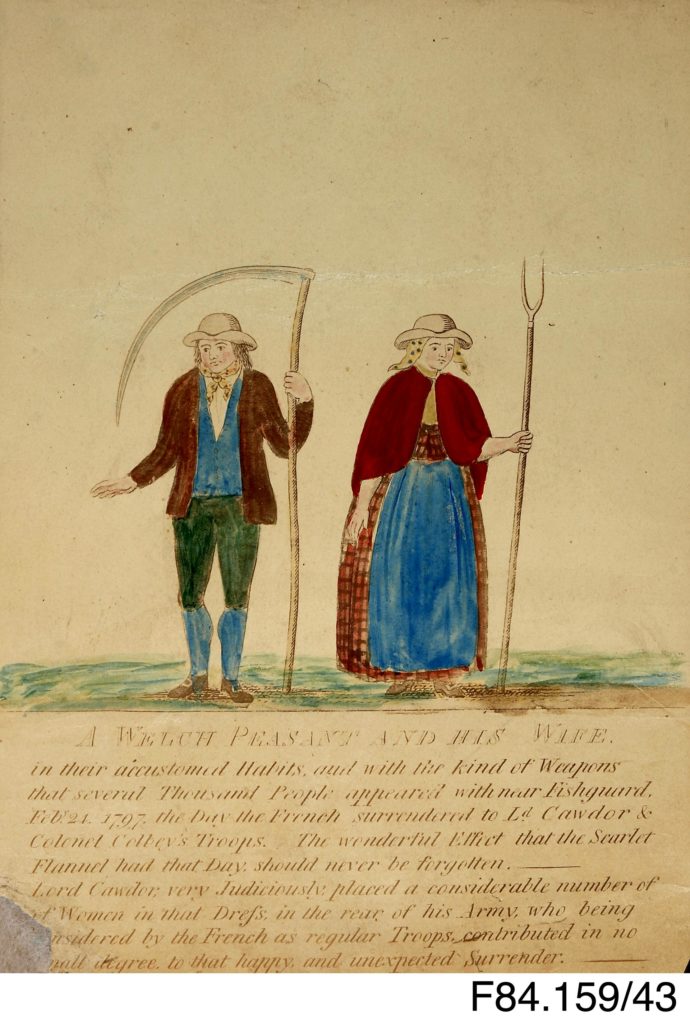 A WELCH PEASANT AND HIS WIFE.
in their accustomed Habits, and with the kind of Weapons
that several Thousand People appeared with near Fishguard,
Feb.y 24. 1797, the Day the French surrendered to L.d Cawdor &
Colonel Colbey's Troops. The wonderful Effect that the Scarlet
Flannel had that Day, should never be forgotten. ——
Lord Cawdor, very Judiciously, placed a considerable number of
of Women in that Dreſs, in the rear, of his Army, who being
nsidered by the French as regular Troops, contributed in no
mall degree, to that happy, and unexpected Surrender. ——
F84.159/43